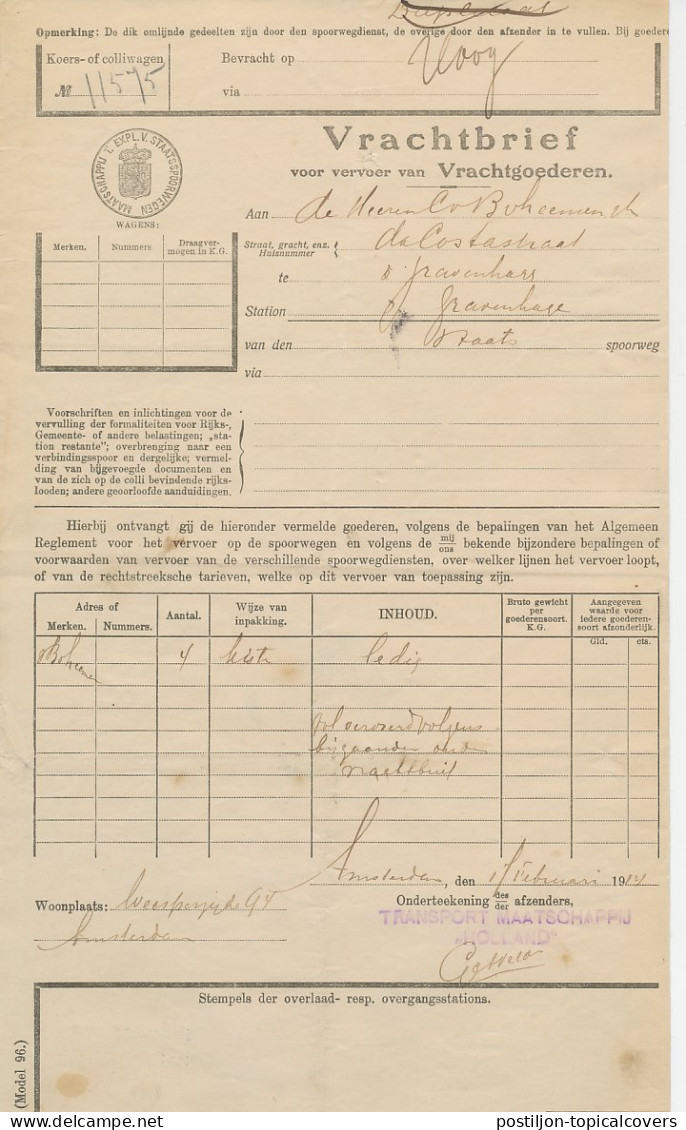 Duplicaat
Opmerking: De dik omlijnde gedeelten zijn door den spoorwegdienst, de overige door den afzender in te vullen. Bij goedere
Koers- of colliwagen
№ 11575
Bevracht op
via
MAATSCHAPPIJ T. EXPL. V. STAATSSPOORWEGEN
Vrachtbrief
voor vervoer van Vrachtgoederen.
WAGENS:
Merken. Nummers Draagver-
mogen in K.G.
Aan de Heeren C v Boheemen
Straat, gracht, enz.
Huisnummer da Costastraat
te s Gravenhage
Station s Gravenhage
van den Staats spoorweg
via
Voorschriften en inlichtingen voor de
vervulling der formaliteiten voor Rijks-,
Gemeente- of andere belastingen; „sta-
tion restante"; overbrenging naar een
verbindingsspoor en dergelijke; vermel-
ding van bijgevoegde documenten en
van de zich op de colli bevindende rijks-
looden; andere geoorloofde aanduidingen.
Hierbij ontvangt gij de hieronder vermelde goederen, volgens de bepalingen van het Algemeen
Reglement voor het vervoer op de spoorwegen en volgens de mij/ons bekende bijzondere bepalingen of
voorwaarden van vervoer van de verschillende spoorwegdiensten, over welker lijnen het vervoer loopt,
of van de rechtstreeksche tarieven, welke op dit vervoer van toepassing zijn.
Adres of
Merken. Nummers.
Aantal.
Wijze van
inpakking.
INHOUD.
Bruto gewicht
per
goederensoort.
K.G.
Aangegeven
waarde voor
iedere goederen-
soort afzonderlijk.
Gld. cts.
vBoheemen 4 ledig
volgens
bijgaanden
vrachtbrief
Amsterdam, den 17 Februari 1914
Woonplaats: Weesperzijde 94
Amsterdam
Onderteekening des/der afzenders,
TRANSPORT MAATSCHAPPIJ
„HOLLAND"
Stempels der overlaad- resp. overgangsstations.
(Model 96.)
postiljon-topicalcovers